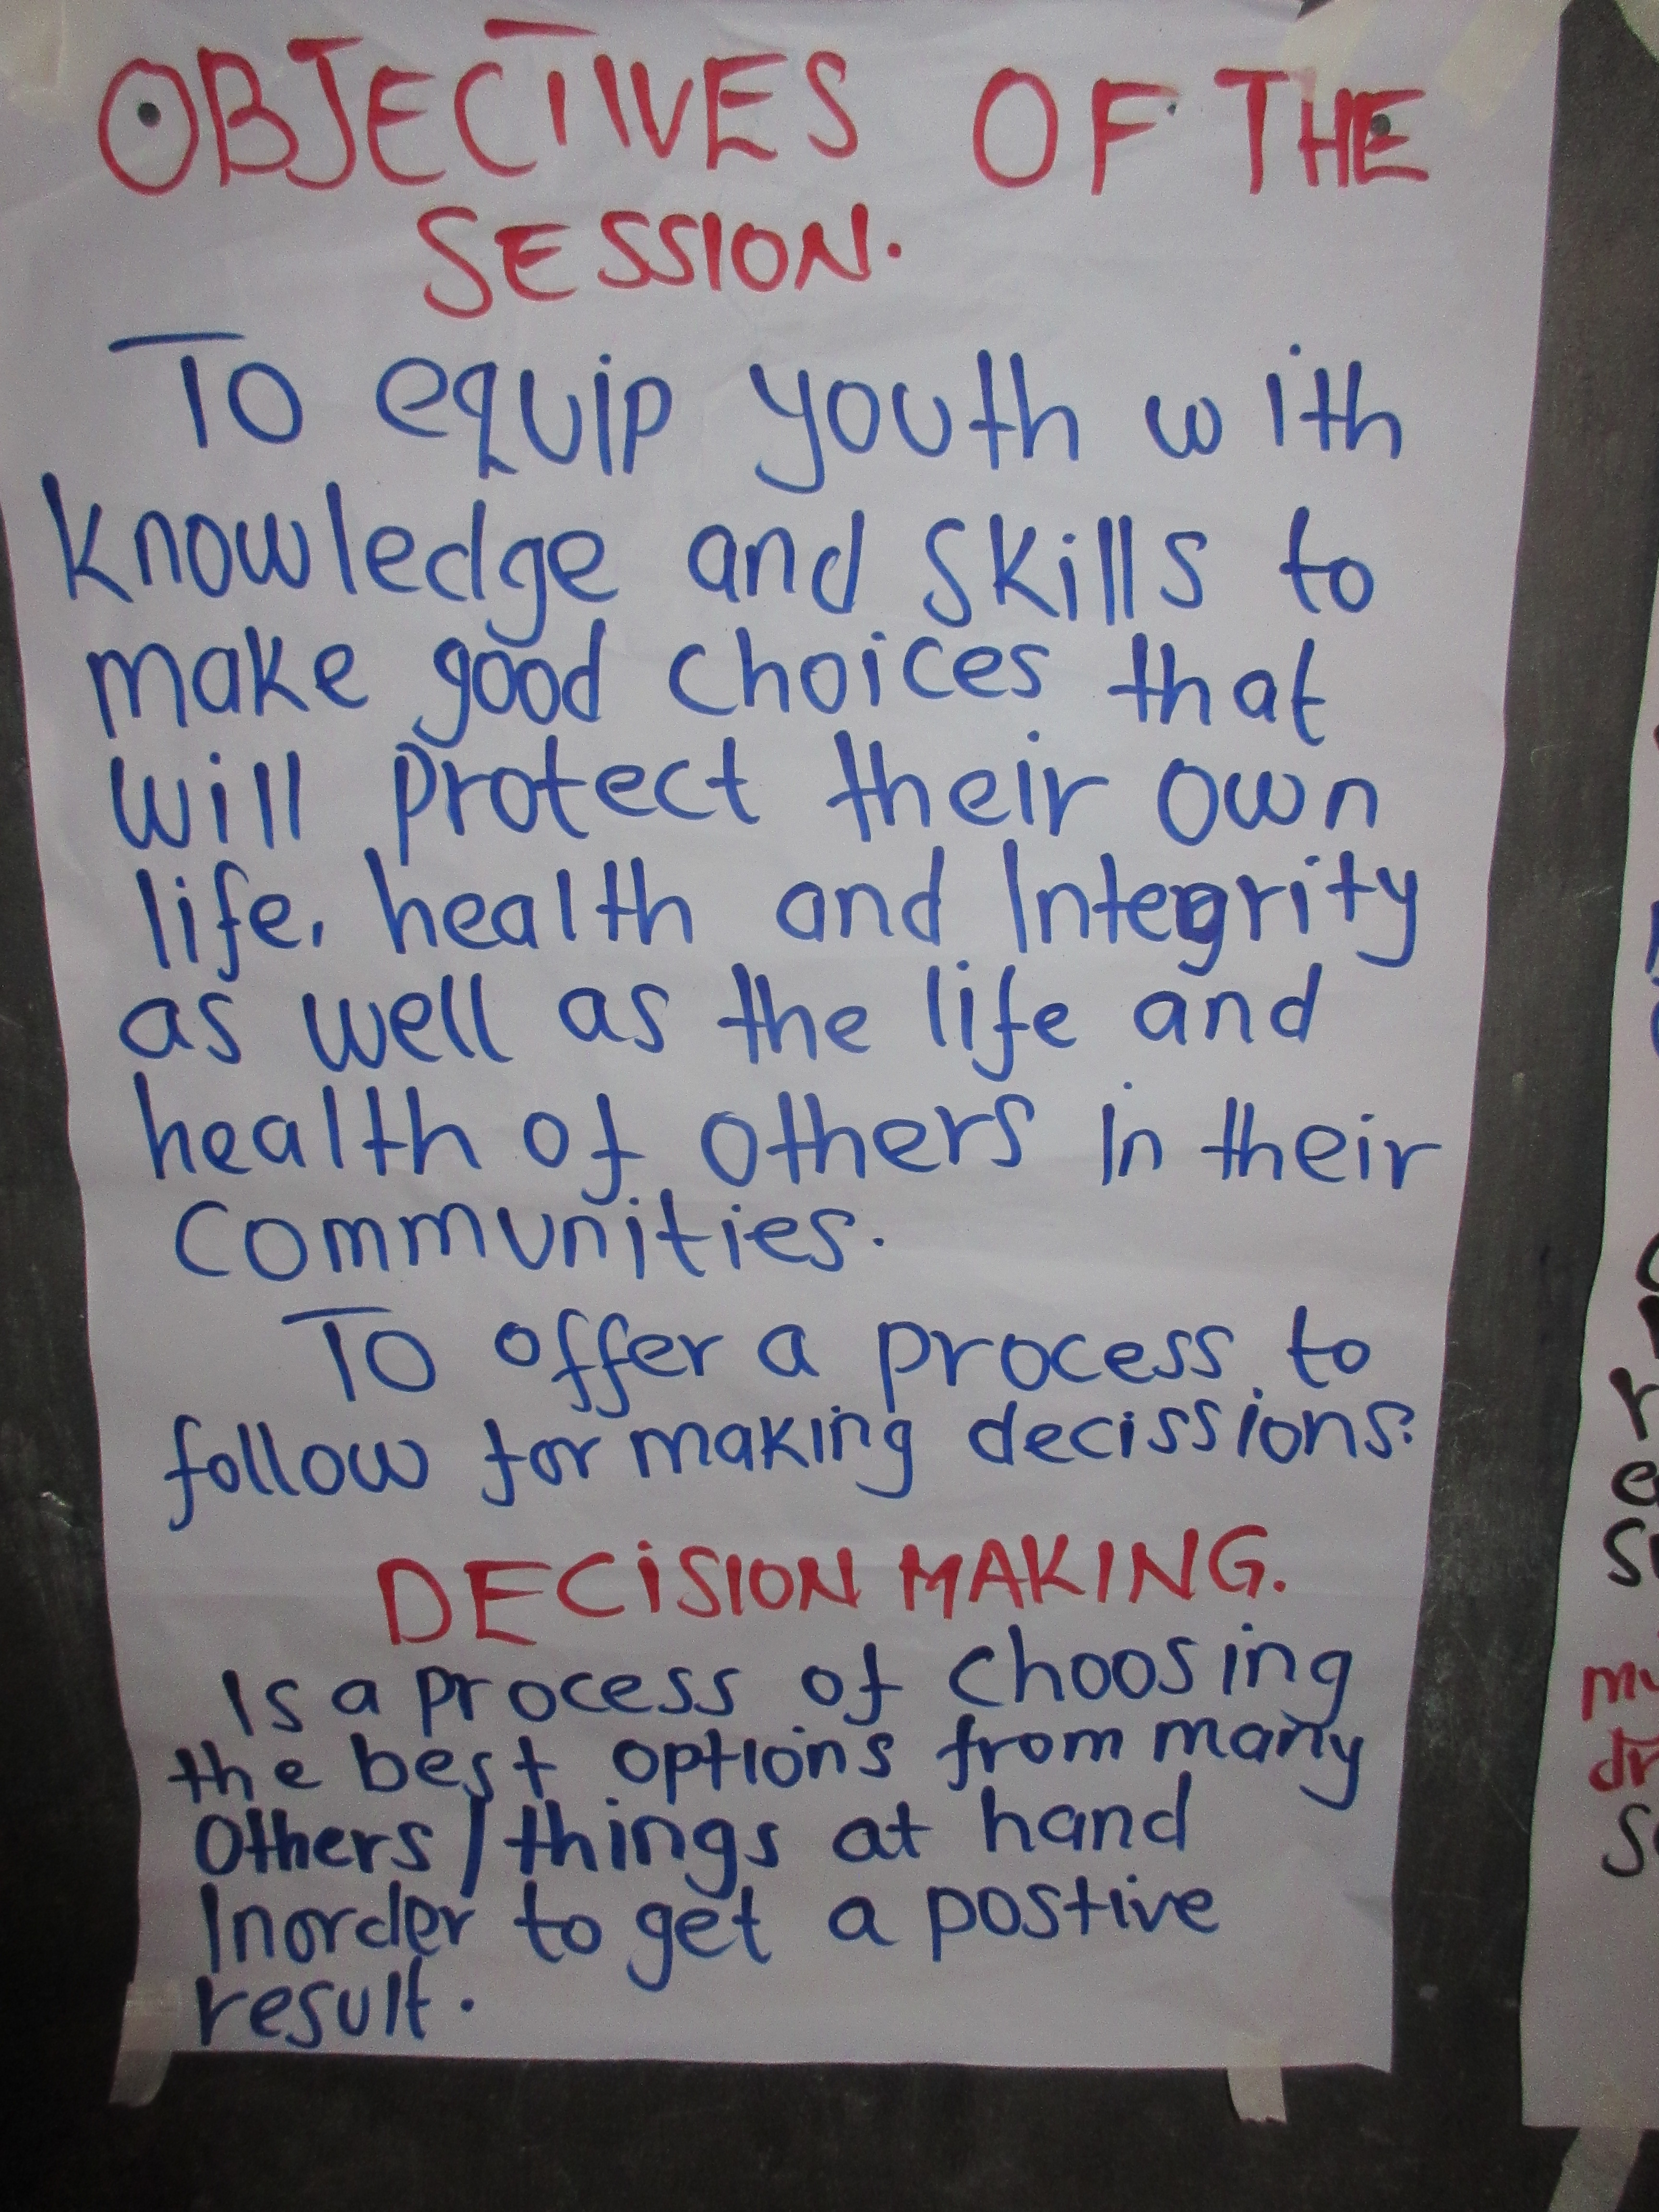 OBJECTIVES OF THE
SESSION.
To equip youth with
knowledge and skills to
make good choices that
will protect their own
life, health and Integrity
as well as the life and
health of others in their
communities.
To offer a process to
follow for making decissions.
DECISION MAKING.
Is a process of choosing
the best options from many
others/things at hand
Inorder to get a postive
result.